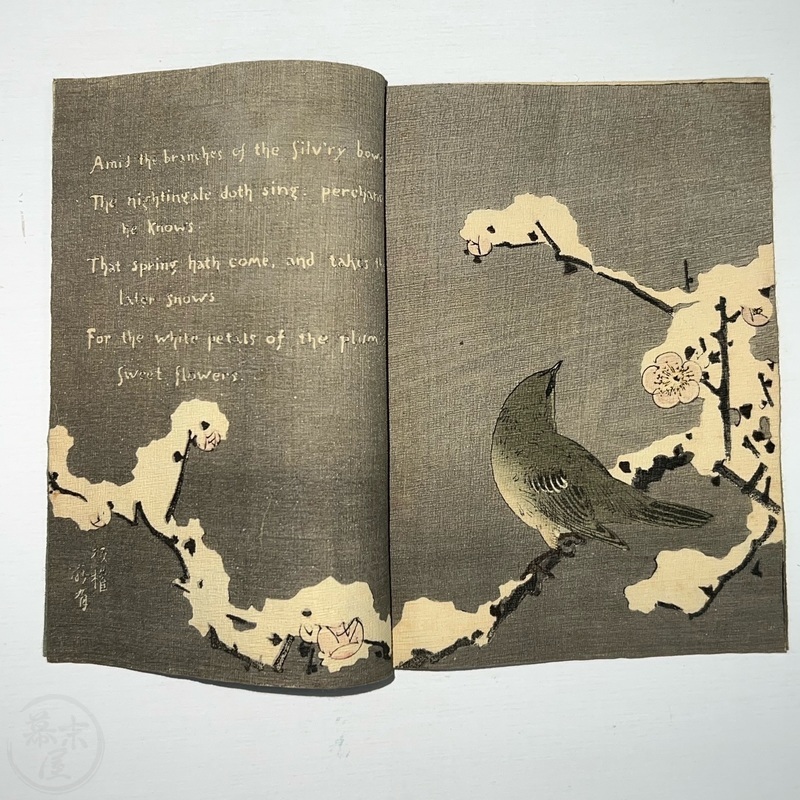 Amid the branches of the silv'ry
The nightingale doth sing. perchan
he knows
That spring hath come, and takes
later snows
For the white petals of the plum
sweet flowers.
幕末屋